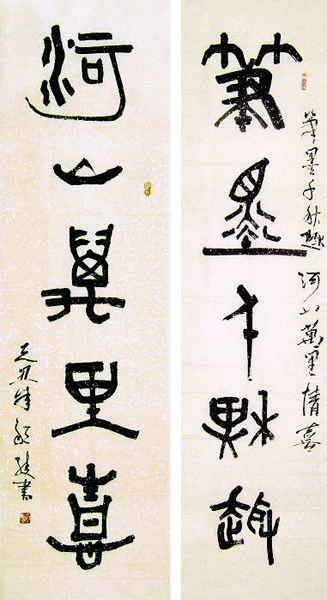 筆墨千秋趣
筆墨千秋趣河山萬里情喜
河山萬里喜
己丑年書